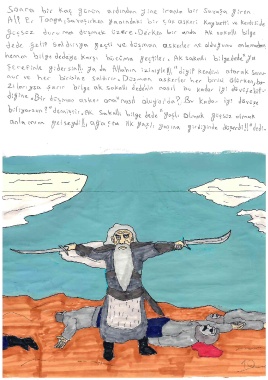 Sonra bir kaç günün ardından yine izinsiz bir Savaşa giren
Alt E Tonga, Savaşırken yanındaki bir çok askeri kaybetti ve kendi de
güçsüz duruma düşmek üzere. Derken bir anda Ak sakallı bilge
dede gelir Saldırıya geçti ve düşman askerler ne olduğunu anlamadan
hemen bilge dedeye karşı hücuma geçtiler. Ak sakallı bilge dede "ya
Şerefimle giderim ya da Allahın izniyle!!!" diyit kendini atarak Savu-
nur ve her birisine saldırır. Düşman askerler her biri ölürken, ba-
zıları şu yarlı bilge ak sakallı dedenin nasıl bu kadar iyi dövüşebil-
diğine. Bir düşman asker ona "nasıl oluyorda? Bu kadar iyi dövüşe
biliyorsun?" demiştir. Ak Sakallı bilge dede "yaşlı olmak güçsüz olmak
anlamına gelseydi!, ağaçta ilk yaşlı yaşına girdiğinde düşerdi!!!" dedi.